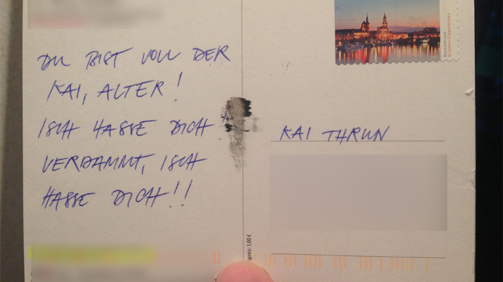 DU BIST VOLL DER
KAI, ALTER!
ISCH HASSE DICH
VERDAMMT, ISCH
HASSE DICH!!
KAI THRUN